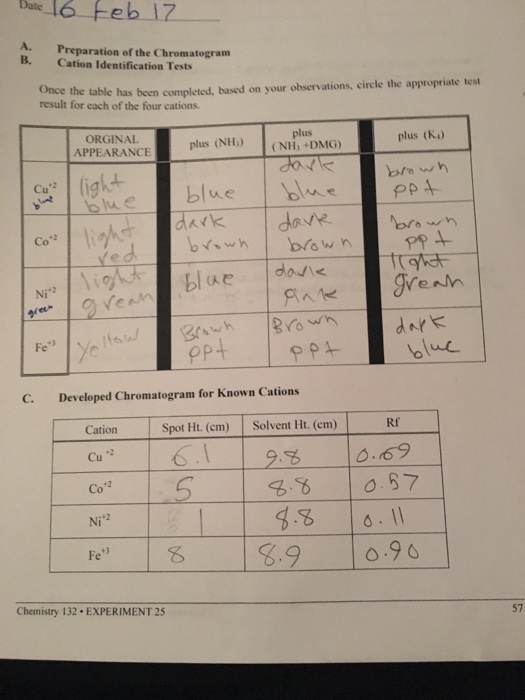 Date 16 Feb 17
A. Preparation of the Chromatogram
B. Cation Identification Tests
Once the table has been completed, based on your observations, circle the appropriate test
result for each of the four cations.
ORGINAL APPEARANCE | plus (NH₃) | plus (NH₃ +DMG) | plus (K₄)
Cu⁺² blue | light blue | blue | dark blue | brown ppt
Co⁺² | light red | dark brown | dark brown | brown ppt
Ni⁺² green | light grean | blue | dark Pink | light grean
Fe⁺³ | Yellow | Brown ppt | Brown ppt | dark blue
C. Developed Chromatogram for Known Cations
Cation | Spot Ht. (cm) | Solvent Ht. (cm) | Rf
Cu⁺² | 6.1 | 9.8 | 0.69
Co⁺² | 5 | 8.8 | 0.57
Ni⁺² | 1 | 8.8 | 0.11
Fe⁺³ | 8 | 8.9 | 0.90
Chemistry 132 • EXPERIMENT 25
57